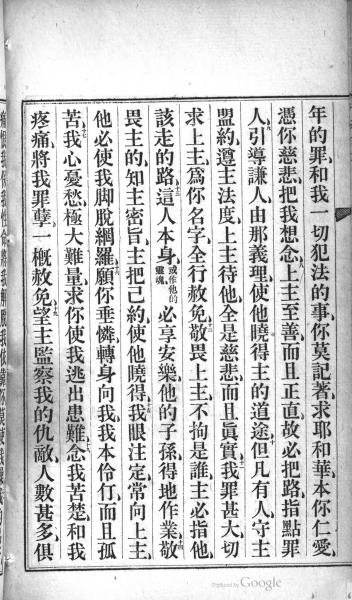 年的罪和我一切犯法的事你莫記著求耶和華本你仁愛
憑你慈悲把我想念上主至善而且正直故必把路指點罪
人引導謙人由那義理使他曉得主的道途但凡有人守主
盟約遵主法度上主待他全是慈悲而且眞實我罪甚大切
求上主爲你名字全行赦免敬畏上主不拘是誰主必指他
該走的路這人本身或作他的靈魂必享安樂他的子孫得地作業敬
畏主的知主密旨主把己約使他曉得我眼注定常向上主
他必使我脚脫網羅願你垂憐轉身向我我本伶仃而且孤
苦我心憂愁極大難量求你使我逃出患難念我苦楚和我
疼痛將我罪孽一槪赦免望主監察我的仇敵人數甚多俱
Digitized by Google